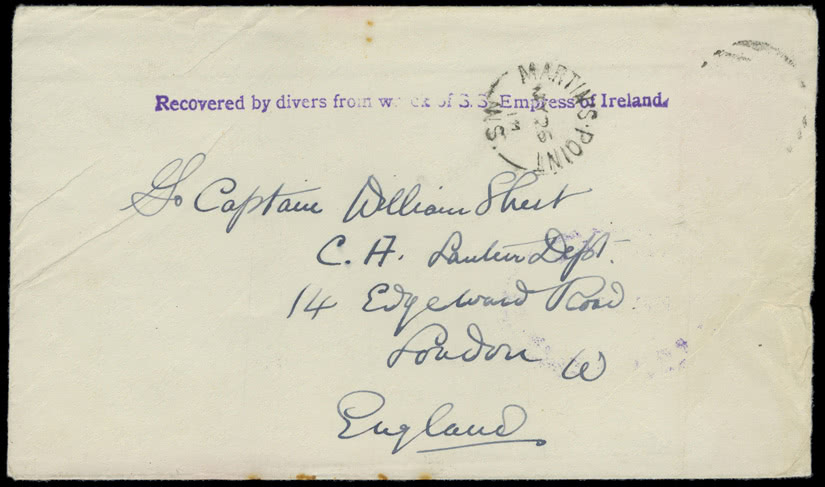 Recovered by divers from wreck of S.S. Empress of Ireland.
MARTINS-POINT
MY 26
N.S.
To Captain William Short
C. A. Lantern Dept.
14 Edgeward Road
London W
England